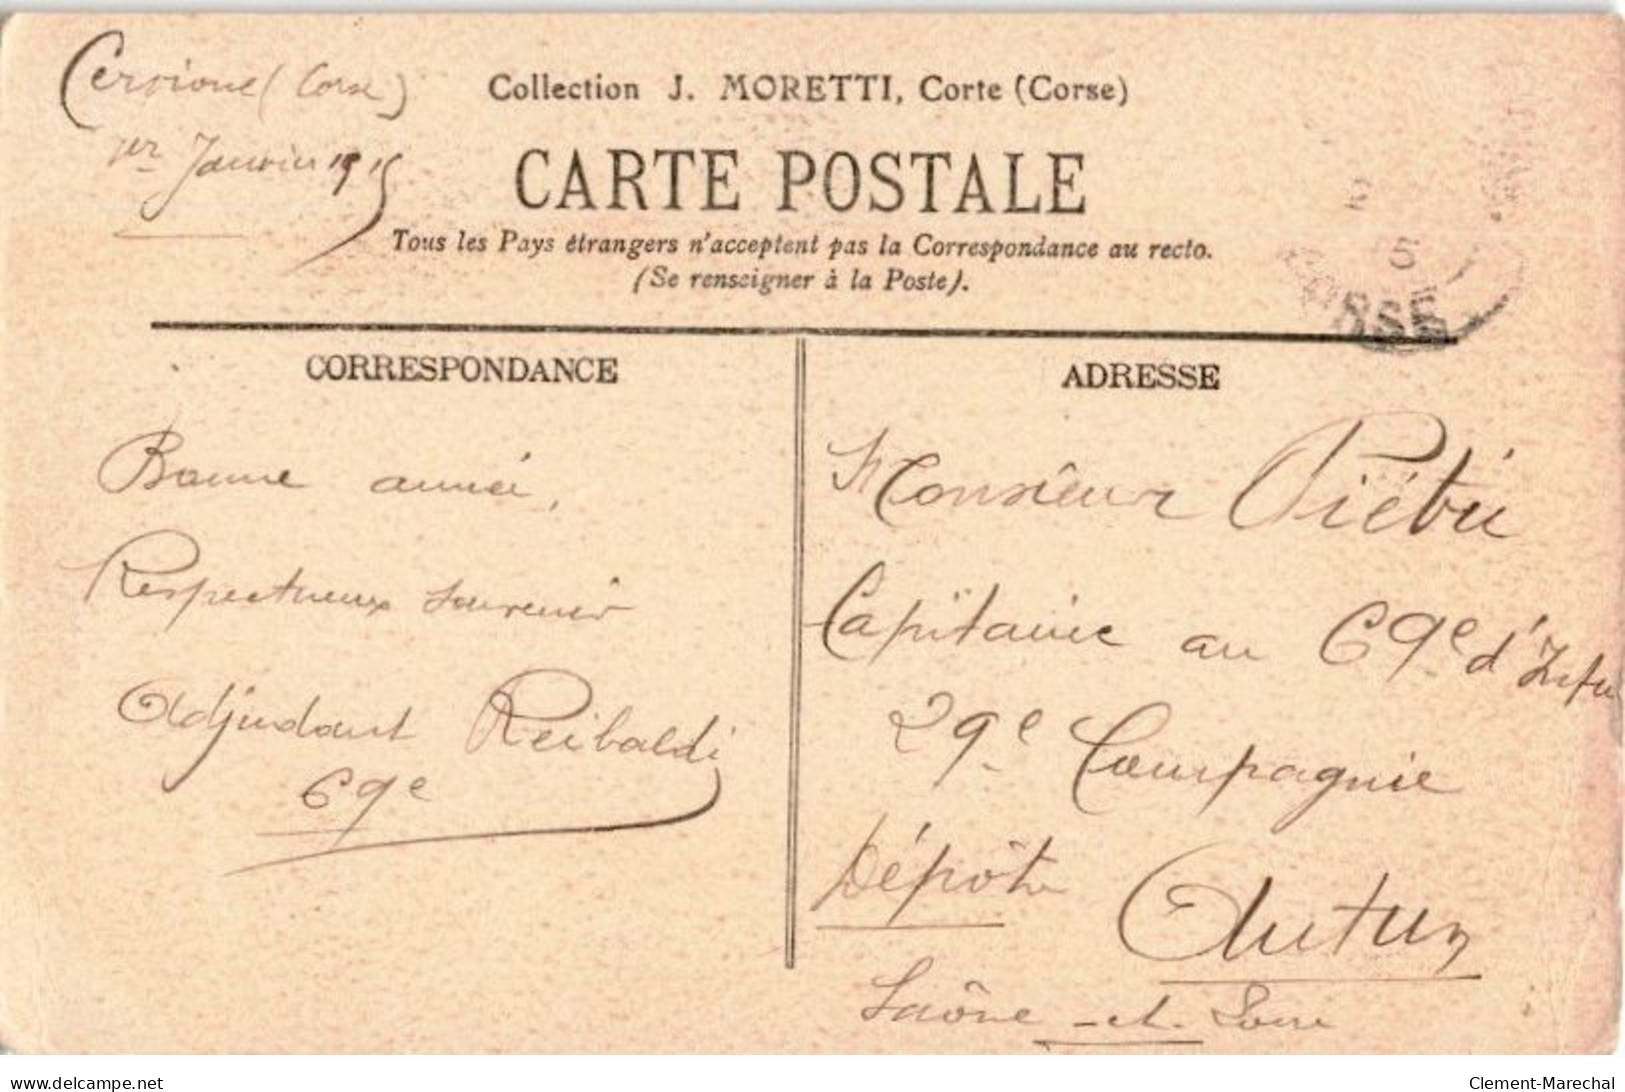 Cervione (Corse)
1er Janvier 1915
Collection J. MORETTI, Corte (Corse)
CARTE POSTALE
Tous les Pays étrangers n'acceptent pas la Correspondance au recto.
(Se renseigner à la Poste).
5
CORSE
CORRESPONDANCE
Bonne année,
Respectueux souvenir
Adjudant Reibaldi
69e
ADRESSE
Monsieur Piétu
Capitaine au 69e d'Infie
29e Compagnie
Dépôt
Autun
Saône-et-Loire
delcampe.net
Clement-Marechal